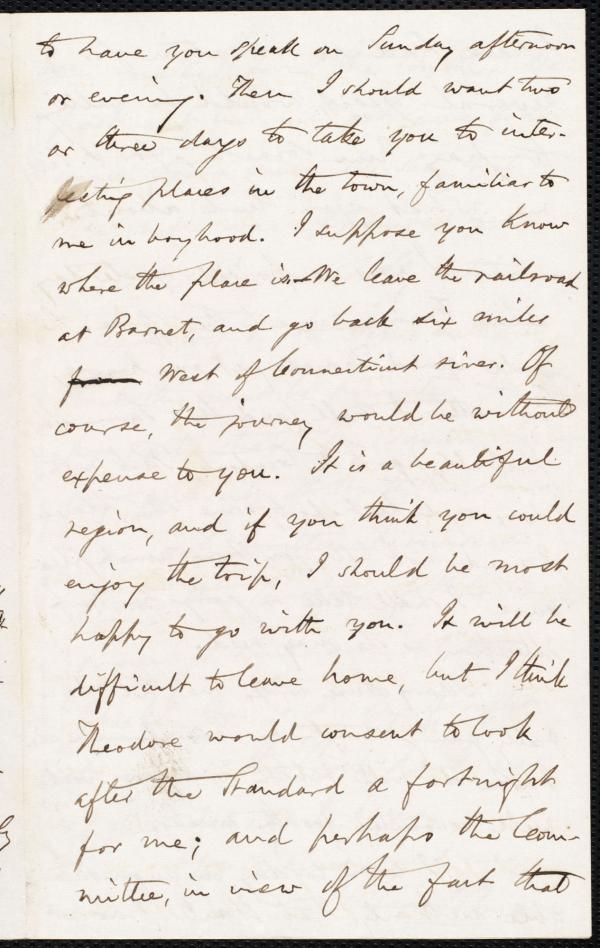 to have you speak on Sunday afternoon
or evening. Then I should want two
or three days to take you to inter-
esting places in the town, familiar to
me in boyhood. I suppose you know
where the place is. We leave the railroad
at Barnet, and go back six miles
from West of Connecticut river. Of
course, the journey would be without
expense to you. It is a beautiful
region, and if you think you could
enjoy the trip, I should be most
happy to go with you. It will be
difficult to leave home, but I think
Theodore would consent to look
after the Standard a fortnight
for me; and perhaps the Com-
mittee, in view of the fact that